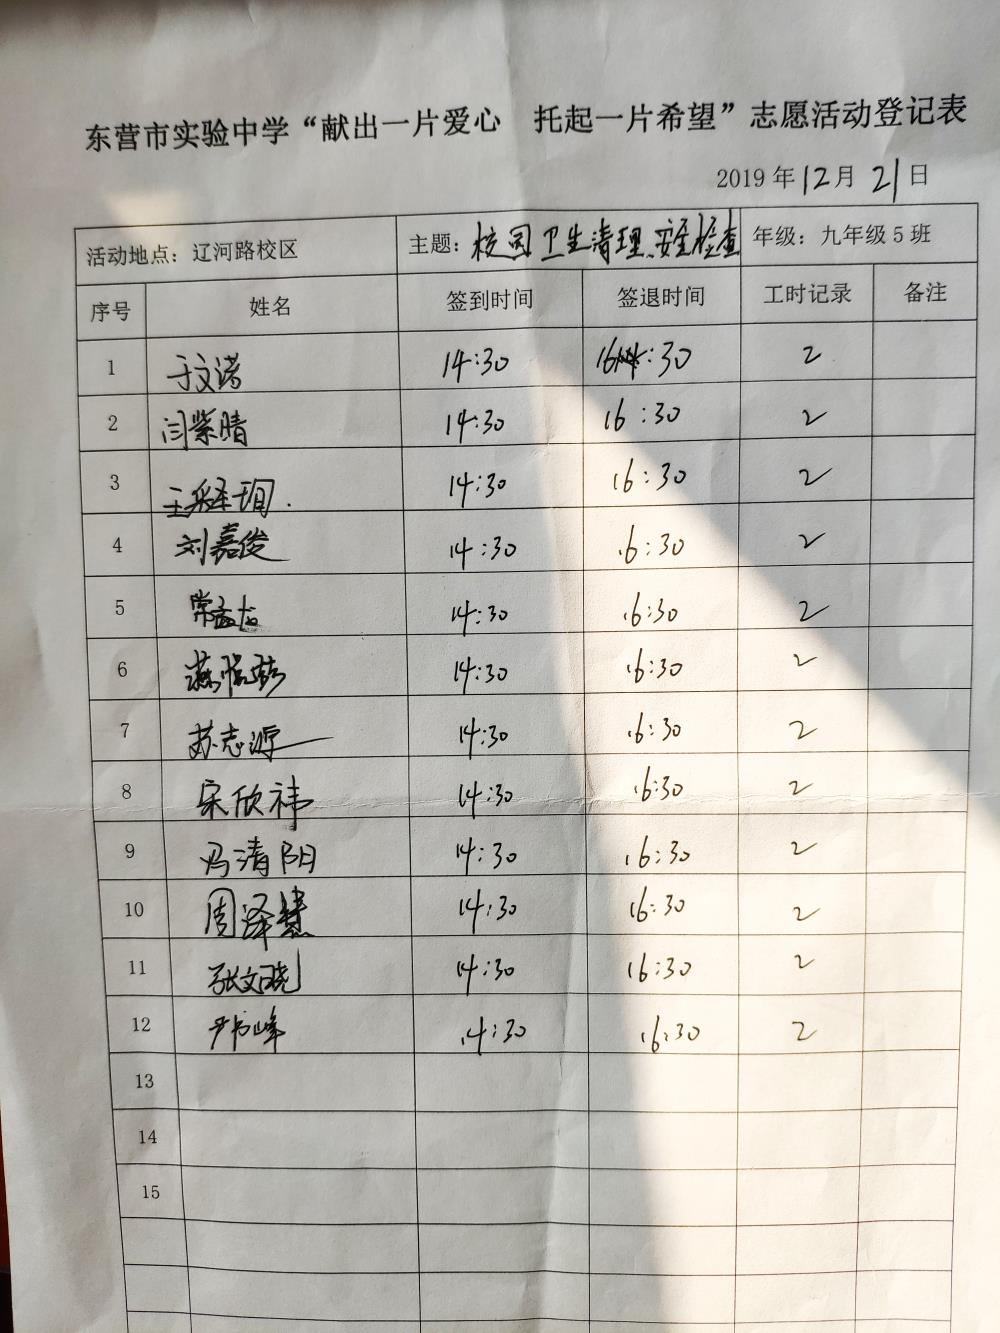 东营市实验中学“献出一片爱心 托起一片希望”志愿活动登记表
2019年12月21日
活动地点：辽河路校区 主题：校园卫生清理、安全检查 年级：九年级5班
序号 姓名 签到时间 签退时间 工时记录 备注
1 于文诺 14:30 16:30 2
2 闫紫晴 14:30 16:30 2
3 王 14:30 16:30 2
4 刘嘉俊 14:30 16:30 2
5 常孟 14:30 16:30 2
6 14:30 16:30 2
7 苏志源 14:30 16:30 2
8 宋欣祎 14:30 16:30 2
9 冯清阳 14:30 16:30 2
10 周泽慧 14:30 16:30 2
11 张文晓 14:30 16:30 2
12 尹书峰 14:30 16:30 2
13
14
15